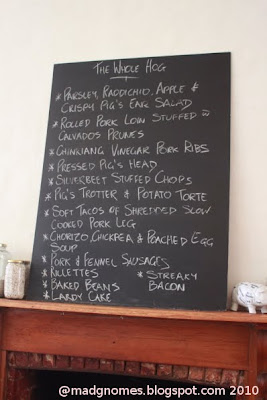 THE WHOLE HOG
* PARSLEY, RADDICHIO, APPLE &
CRISPY PIG'S EAR SALAD
* ROLLED PORK LOIN STUFFED W
CALVADOS PRUNES
* CHINKIANG VINEGAR PORK RIBS
* PRESSED PIG'S HEAD
* SILVERBEET STUFFED CHOPS
* PIG'S TROTTER & POTATO TORTE
* SOFT TACOS OF SHREDDED SLOW
COOKED PORK LEG
* CHORIZO, CHICKPEA & POACHED EGG
SOUP
* PORK & FENNEL SAUSAGES
* RILLETTES * STREAKY
* BAKED BEANS BACON
* LARDY CAKE
@madgnomes.blogspot.com 2010